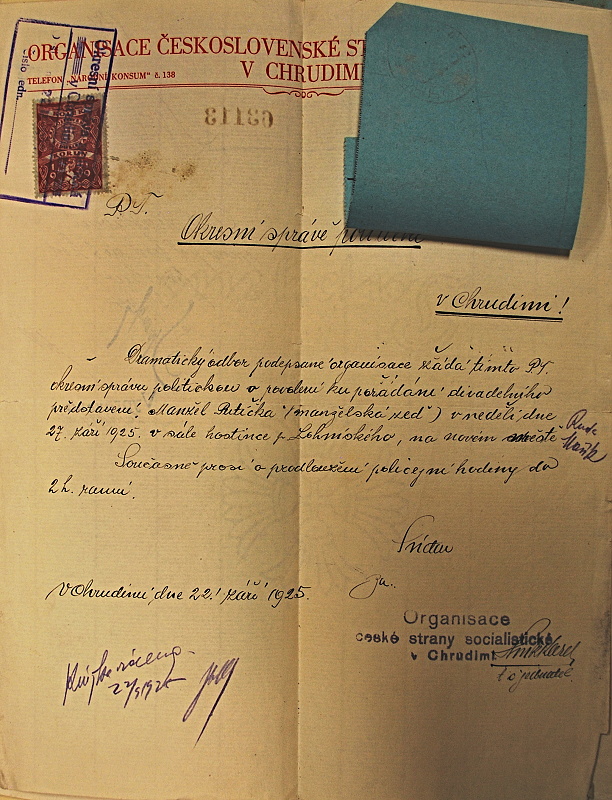 ORGANISACE ČESKOSLOVENSKÉ ST
V CHRUDIMI
TELEFON „NÁRODNÍ KONSUM" č. 138
Okresní
v Ch
Číslo edn.
63113
P. T.
Okresní správě
v Chrudimi!
Dramatický odbor podepsané organisace žádá tímto P.T.
okresní správu politickou o povolení ku pořádání divadelního
představení: Manžel Putička (manželská zeď) v neděli dne
27. září 1925. v sále hostince p. Lohniského, na novém městě
Současně prosí o prodloužení policejní hodiny do
2 h. ranní.
za:
V Chrudimi dne 22. září 1925.
Organisace
české strany socialistické
v Chrudimi